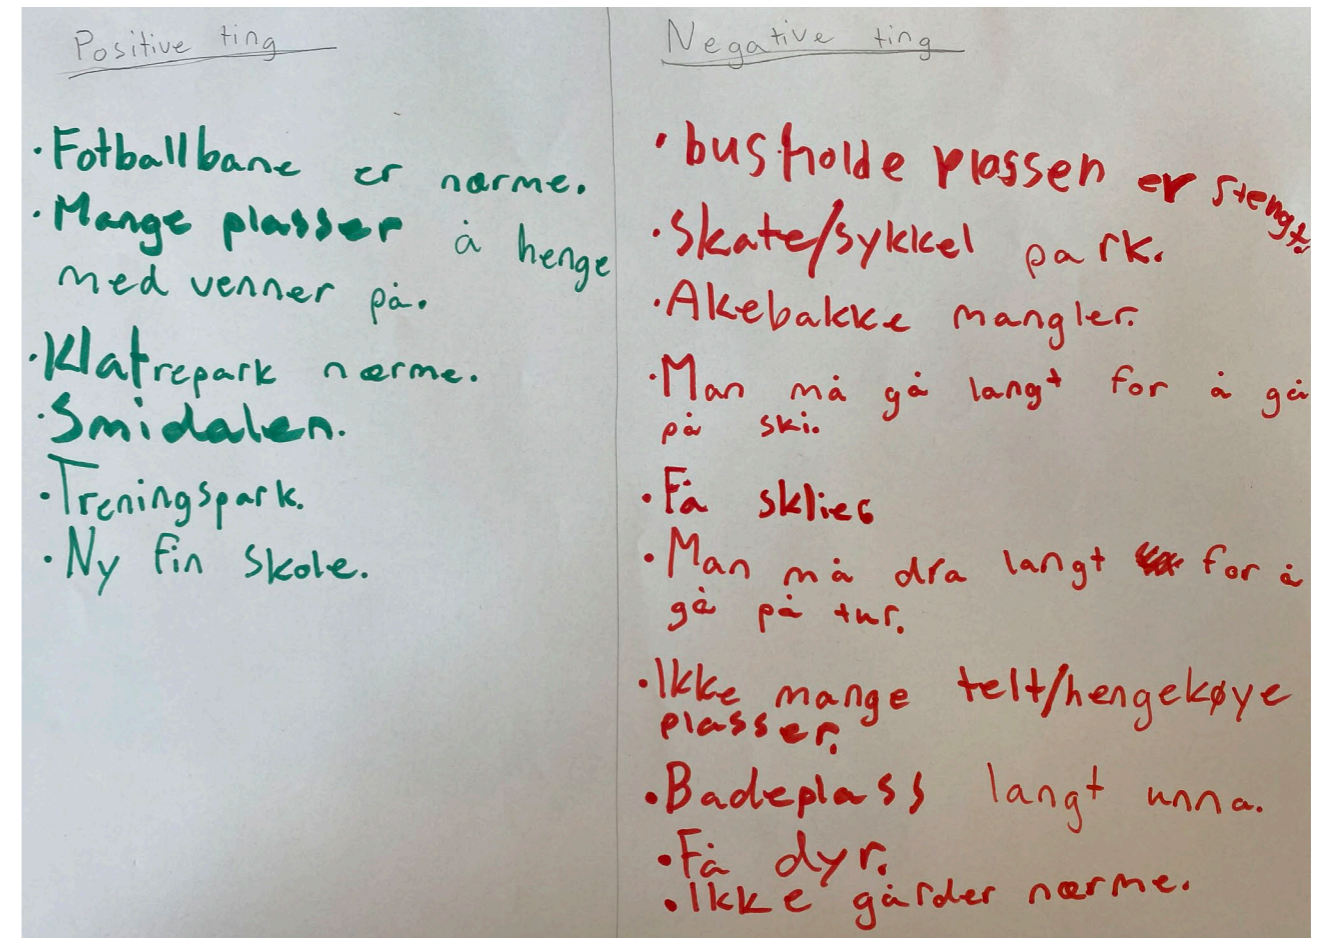 Positive ting
• Fotballbane er nærme.
• Mange plasser å henge
med venner på.
• Klatrepark nærme.
• Smidalen.
• Treningspark.
• Ny fin skole.
Negative ting
• busholde plassen er stengt.
• Skate/sykkel park.
• Akebakke mangler.
• Man må gå langt for å gå
på ski.
• Få sklier
• Man må dra langt for å
gå på tur.
• Ikke mange telt/hengekøye
plasser.
• Badeplass langt unna.
• Få dyr.
• Ikke gårder nærme.